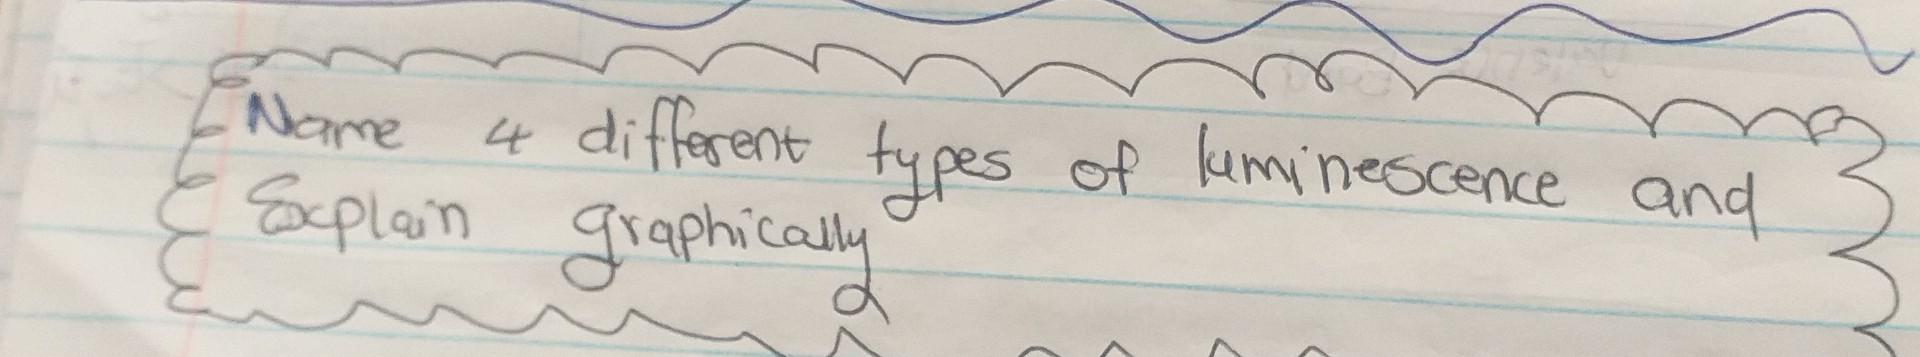 Name 4 different types of luminescence and
Explain graphically